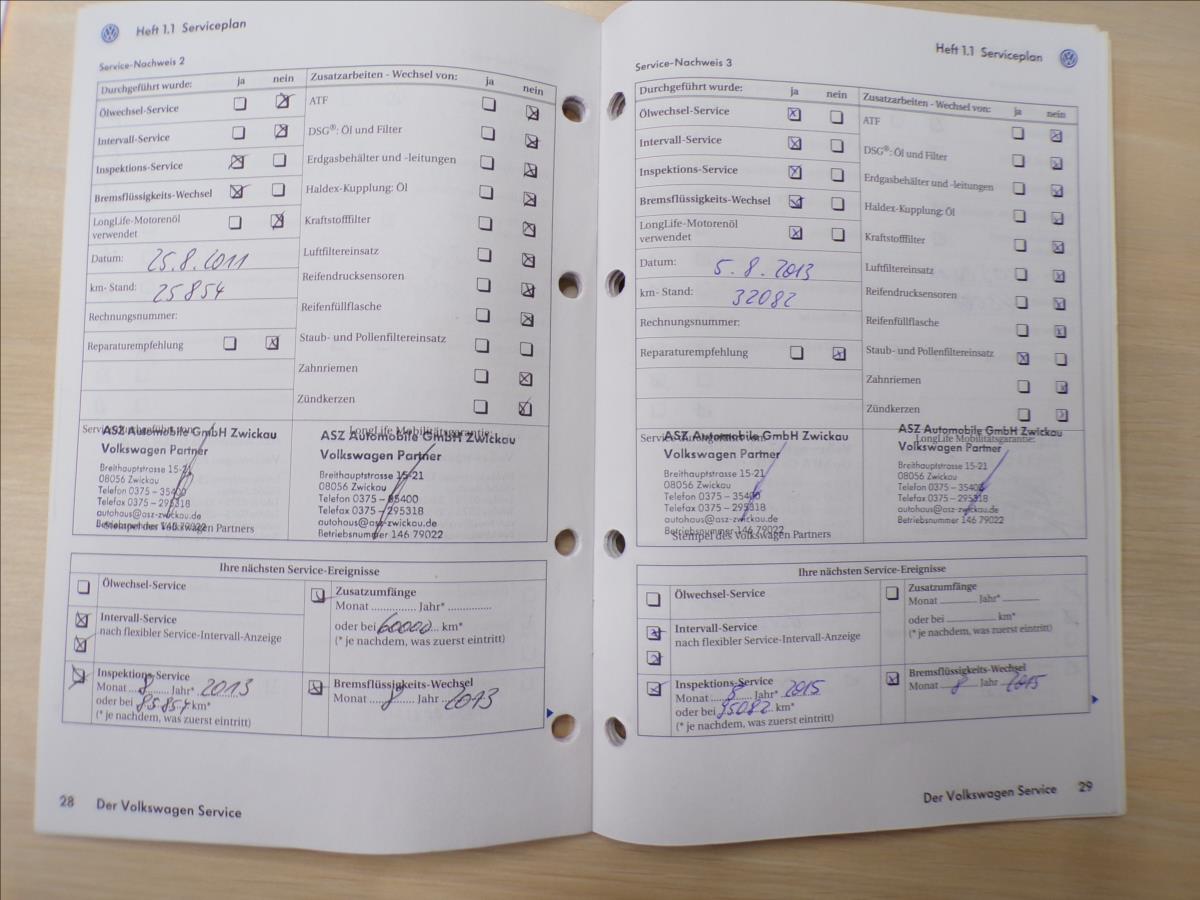 Heft 1.1 Serviceplan
Service-Nachweis 2
Durchgeführt wurde: ja nein
Ölwechsel-Service
Intervall-Service
Inspektions-Service
Bremsflüssigkeits-Wechsel
LongLife-Motorenöl
verwendet
Datum: 25.8.2011
km- Stand: 25854
Rechnungsnummer:
Reparaturempfehlung
Zusatzarbeiten - Wechsel von: ja nein
ATF
DSG®: Öl und Filter
Erdgasbehälter und -leitungen
Haldex-Kupplung: Öl
Kraftstofffilter
Luftfiltereinsatz
Reifendrucksensoren
Reifenfüllflasche
Staub- und Pollenfiltereinsatz
Zahnriemen
Zündkerzen
ASZ Automobile GmbH Zwickau
Volkswagen Partner
Breithauptstrasse 15-21
08056 Zwickau
Telefon 0375 – 35400
Telefax 0375 – 295318
autohaus@asz-zwickau.de
Betriebsnummer 146 79022
Stempel des Volkswagen Partners
LongLife Mobilitätsgarantie:
ASZ Automobile GmbH Zwickau
Volkswagen Partner
Breithauptstrasse 15-21
08056 Zwickau
Telefon 0375 – 35400
Telefax 0375 – 295318
autohaus@asz-zwickau.de
Betriebsnummer 146 79022
Ihre nächsten Service-Ereignisse
Ölwechsel-Service
Intervall-Service
nach flexibler Service-Intervall-Anzeige
Inspektions-Service
Monat 8 Jahr* 2013
oder bei 85854 km*
(* je nachdem, was zuerst eintritt)
Zusatzumfänge
Monat Jahr*
oder bei 60000 km*
(* je nachdem, was zuerst eintritt)
Bremsflüssigkeits-Wechsel
Monat 8 Jahr 2013
28 Der Volkswagen Service
Heft 1.1 Serviceplan
Service-Nachweis 3
Durchgeführt wurde: ja nein
Ölwechsel-Service
Intervall-Service
Inspektions-Service
Bremsflüssigkeits-Wechsel
LongLife-Motorenöl
verwendet
Datum: 5.8.2013
km- Stand: 32082
Rechnungsnummer:
Reparaturempfehlung
Zusatzarbeiten - Wechsel von: ja nein
ATF
DSG®: Öl und Filter
Erdgasbehälter und -leitungen
Haldex-Kupplung: Öl
Kraftstofffilter
Luftfiltereinsatz
Reifendrucksensoren
Reifenfüllflasche
Staub- und Pollenfiltereinsatz
Zahnriemen
Zündkerzen
ASZ Automobile GmbH Zwickau
Volkswagen Partner
Breithauptstrasse 15-21
08056 Zwickau
Telefon 0375 – 35400
Telefax 0375 – 295318
autohaus@asz-zwickau.de
Betriebsnummer 146 79022
Stempel des Volkswagen Partners
ASZ Automobile GmbH Zwickau
LongLife Mobilitätsgarantie:
Volkswagen Partner
Breithauptstrasse 15-21
08056 Zwickau
Telefon 0375 – 35400
Telefax 0375 – 295318
autohaus@asz-zwickau.de
Betriebsnummer 146 79022
Ihre nächsten Service-Ereignisse
Ölwechsel-Service
Intervall-Service
nach flexibler Service-Intervall-Anzeige
Inspektions-Service
Monat 8 Jahr* 2015
oder bei 95082 km*
(* je nachdem, was zuerst eintritt)
Zusatzumfänge
Monat Jahr*
oder bei km*
(* je nachdem, was zuerst eintritt)
Bremsflüssigkeits-Wechsel
Monat 8 Jahr 2015
Der Volkswagen Service 29